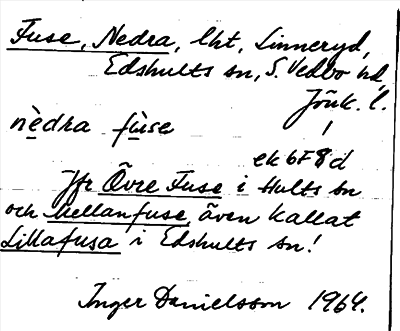 Fuse, Nedra, lht, Linneryd,
Edshults sn, S. Vedbo hd,
Jönk. l.
nèdra fùse
ek 6F8d
Jfr Övre Fuse i Hults sn
och Mellanfuse, även kallat
Lillafusa i Edshults sn!
Inger Danielsson 1964.